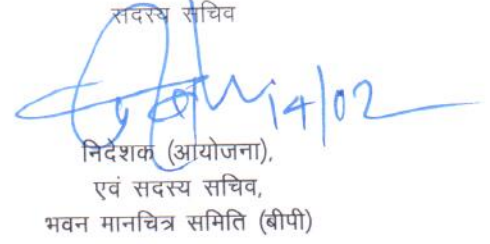 सदस्य सचिव
14/02
निदेशक (आयोजना),
एवं सदस्य सचिव,
भवन मानचित्र समिति (बीपी)